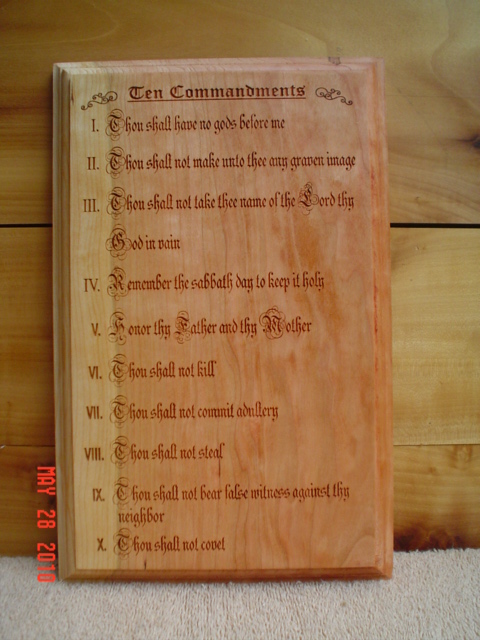 Ten Commandments
I. Thou shall have no gods before me
II. Thou shall not make unto thee any graven image
III. Thou shall not take thee name of the Lord thy
God in vain
IV. Remember the sabbath day to keep it holy
V. Honor thy Father and thy Mother
VI. Thou shall not kill
VII. Thou shall not commit adultery
VIII. Thou shall not steal
IX. Thou shall not bear false witness against thy
neighbor
X. Thou shall not covet
MAY 28 2010